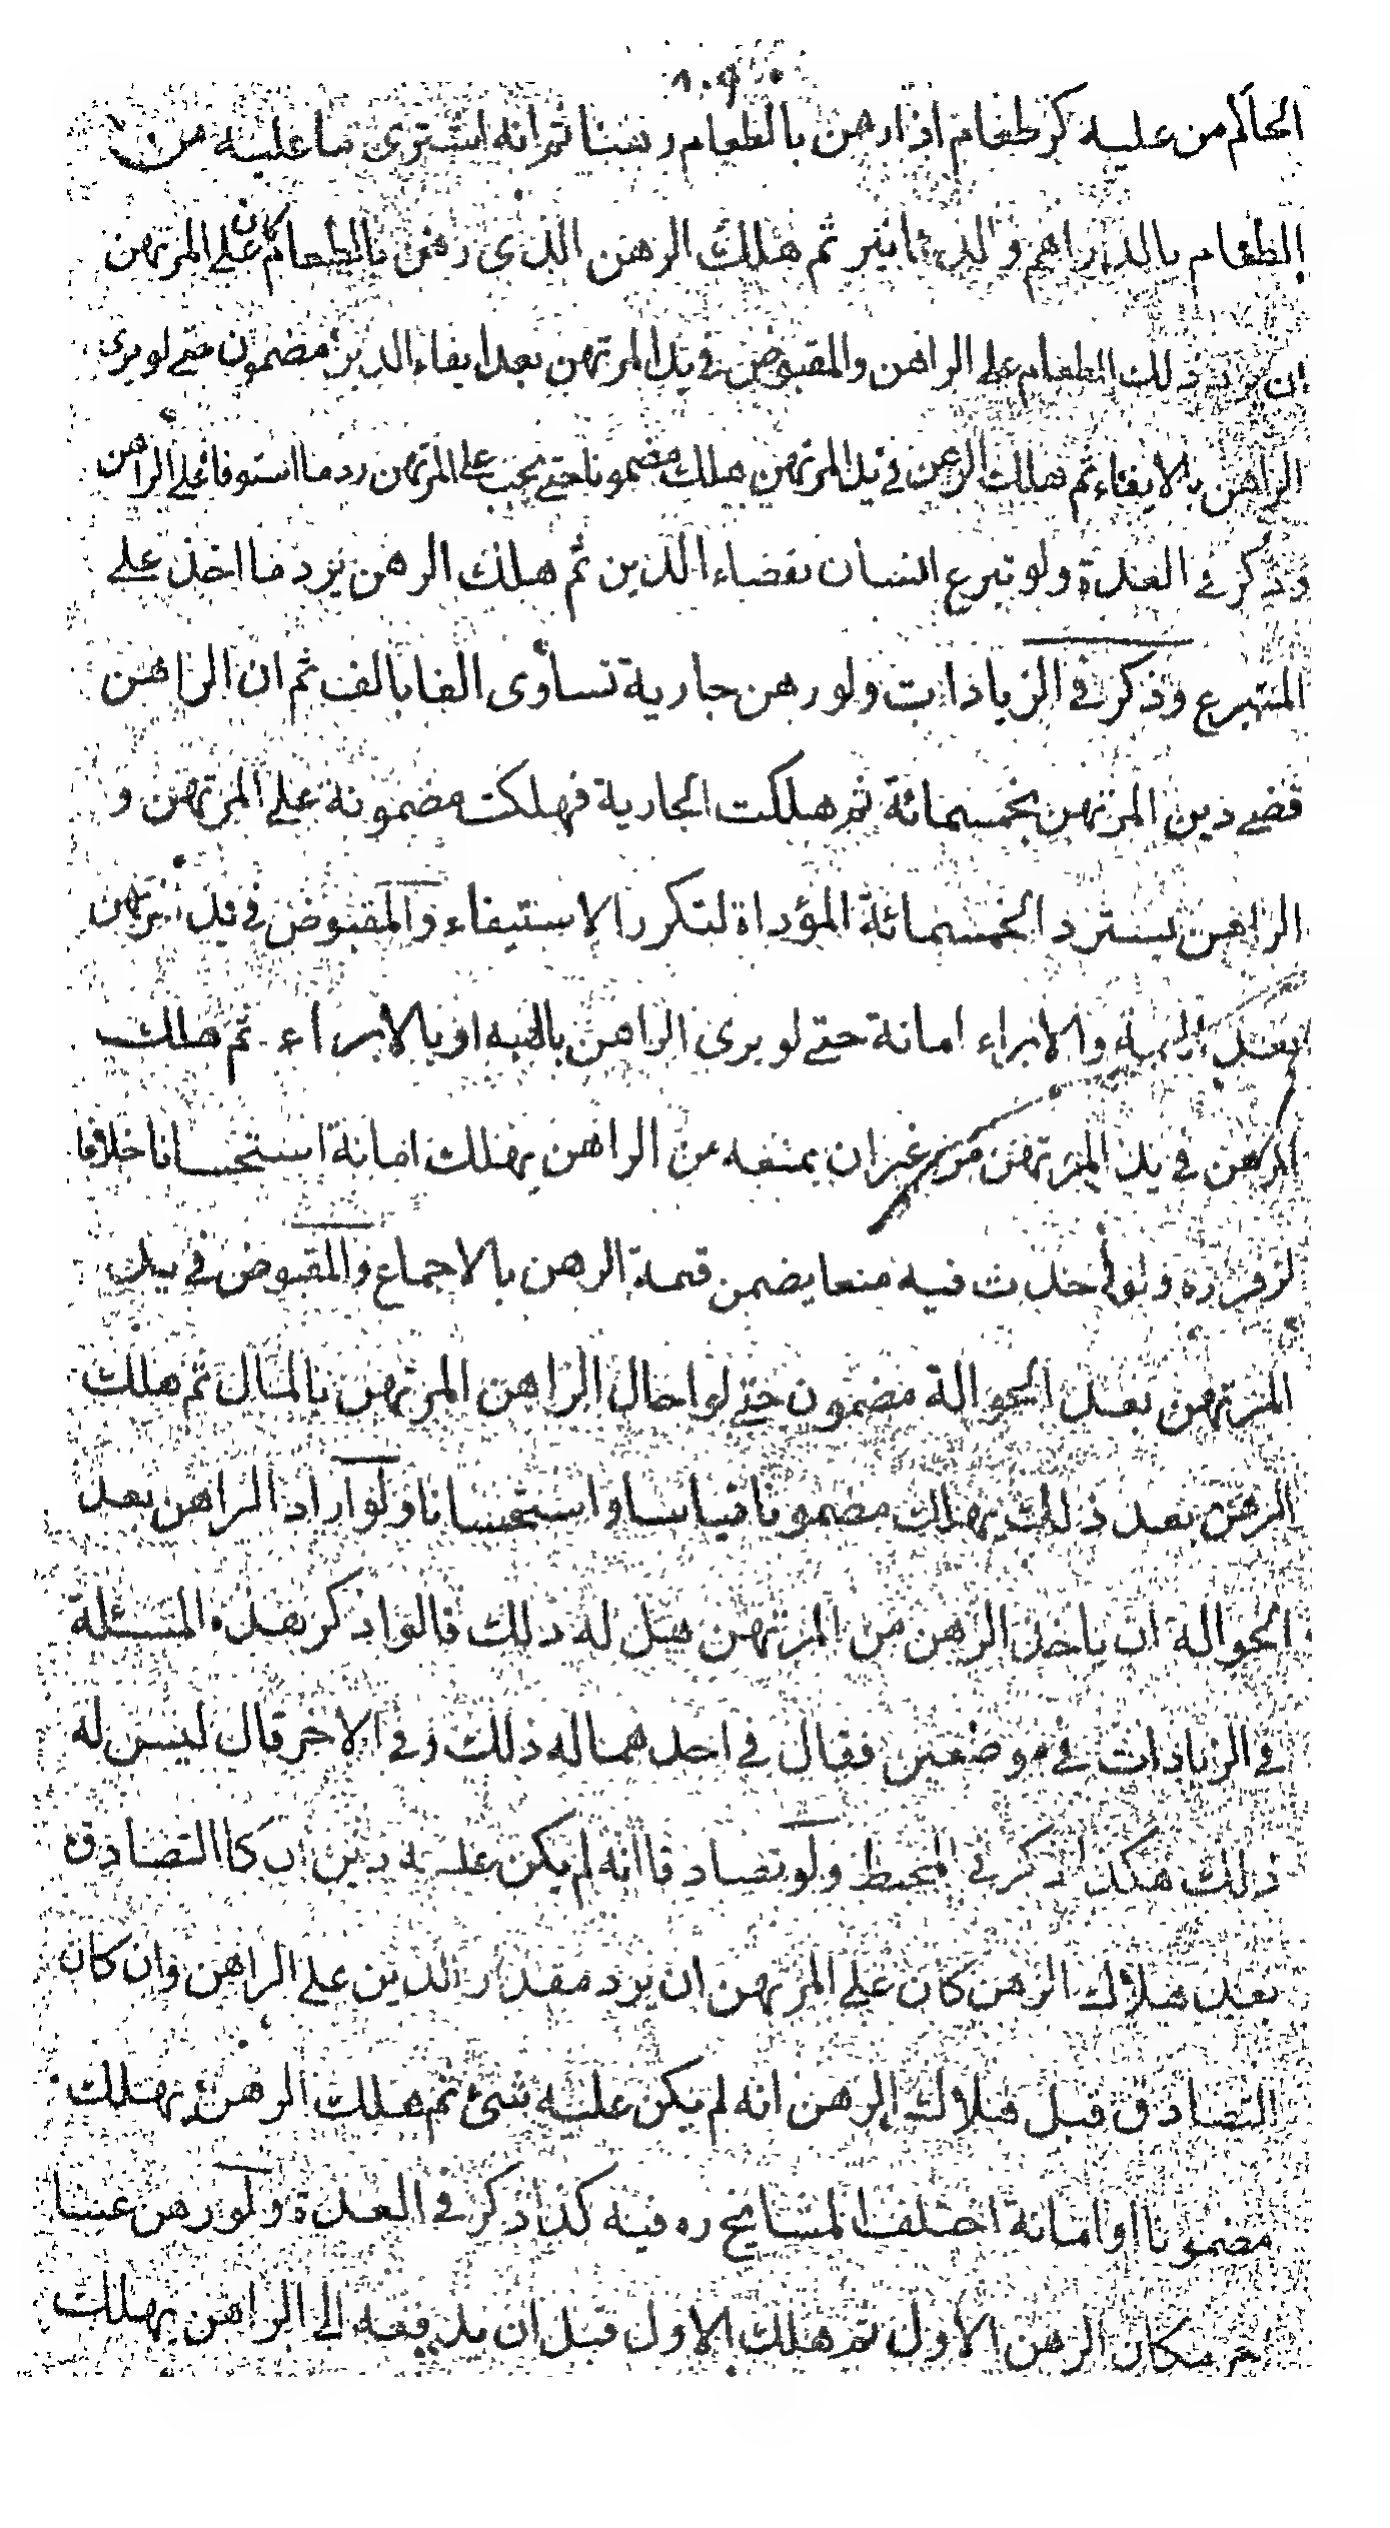 ١٠٩
الحاكم من عليه كر طعام اذا رهن بالطعام رهنا ثم انه اشترى ما عليه من
الطعام بالدراهم والدنانير ثم هلك الرهن الذى رهن بالطعام كان على المرتهن
ان يرد ذلك الطعام على الراهن والمقبوض فى يد المرتهن بعد ايفاء الدين مضمون حتى لو برى
الراهن بالايفاء ثم هلك الرهن فى يد المرتهن هلك مضمونا حتى يجب على المرتهن رد ما استوفا على الراهن
وذكر فى العدة ولو تبرع انسان بقضاء الدين ثم هلك الرهن يرد ما اخذ على
المتبرع وذكر فى الزيادات ولو رهن جارية تساوى الفا بالف ثم ان الراهن
قضى دين المرتهن بخمسمائة ثم هلكت الجارية فهلكت مضمونة على المرتهن و
الراهن يسترد الخمسمائة المؤداة لتكرر الاستيفاء والمقبوض فى يد المرتهن
بعد الهبة والابراء امانة حتى لو برى الراهن بالهبه او بالابراء ثم هلك
الرهن فى يد المرتهن من غير ان يمنعه من الراهن يهلك امانة استحسانا خلافا
لزفر ره ولو احدث فيه منعا يضمن قيمة الرهن بالاجماع والمقبوض فى يد
المرتهن بعد الحوالة مضمون حتى لو احال الراهن المرتهن بالمال ثم هلك
الرهن بعد ذلك يهلك مضمونا قياسا واستحسانا ولو اراد الراهن بعد
الحوالة ان ياخذ الرهن من المرتهن هل له ذلك قالوا ذكر هذه المسئلة
فى الزيادات فى موضعين فقال فى احدهما له ذلك وفى الاخر قال ليس له
ذلك هكذا ذكر فى المحيط ولو تصادقا انه لم يكن عليه دين ان كا التصادق
بعد هلاك الرهن كان على المرتهن ان يرد مقدار الدين على الراهن وان كان
التصادق قبل هلاك الرهن انه لم يكن عليه شئ ثم هلك الرهن يهلك
مضمونا او امانة اختلف المشايخ ره فيه كذا ذكر فى العدة ولو رهن عينا
اخر مكان الرهن الاول ثم هلك الاول قبل ان يدفعه الى الراهن يهلك